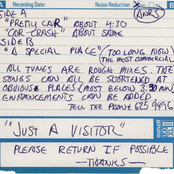 Recording Date: Noise Reduction
SIDE A
"PRETTY CAR" ABOUT 4:30
"CAR-CRASH" ABOUT SAME
SIDE B
"A SPECIAL PLACE" (TOO LONG NOW)
(THE MOST COMMERCIAL
ALL TUNES ARE ROUGH MIXES. THE
SONGS CAN ALL BE SHORTENED AT
OBVIOUS PLACES (MOST BELOW 3:30 MIN)
ENHANCEMENTS CAN BE ADDED
TELL THE PHONE 625 9496
"JUST A VISITOR"
PLEASE RETURN IF POSSIBLE
—THANKS—